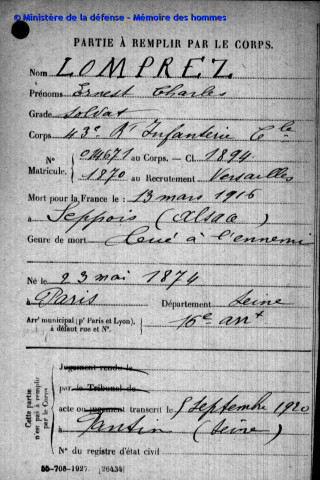 © Ministère de la défense - Mémoire des hommes
PARTIE À REMPLIR PAR LE CORPS.
Nom LOMPREZ
Prénoms Ernest Charles
Grade Soldat
Corps 43e Rt Infanterie Cle
N° 014671 au Corps. — Cl. 1894.
Matricule. 1870 au Recrutement Versailles
Mort pour la France le : 13 mars 1916
à Seppois (Alsace)
Genre de mort Tué à l'ennemi
Né le 23 mai 1874
à Paris Département Seine
Arrt municipal (pr Paris et Lyon), à défaut rue et N°. 16e arrt
Cette partie n'est pas à remplir par le Corps.
Jugement rendu le
par le Tribunal de
acte ou jugement transcrit le 5 Septembre 1920
à Pantin (Seine)
N° du registre d'état civil
50-708-1927. [26434]